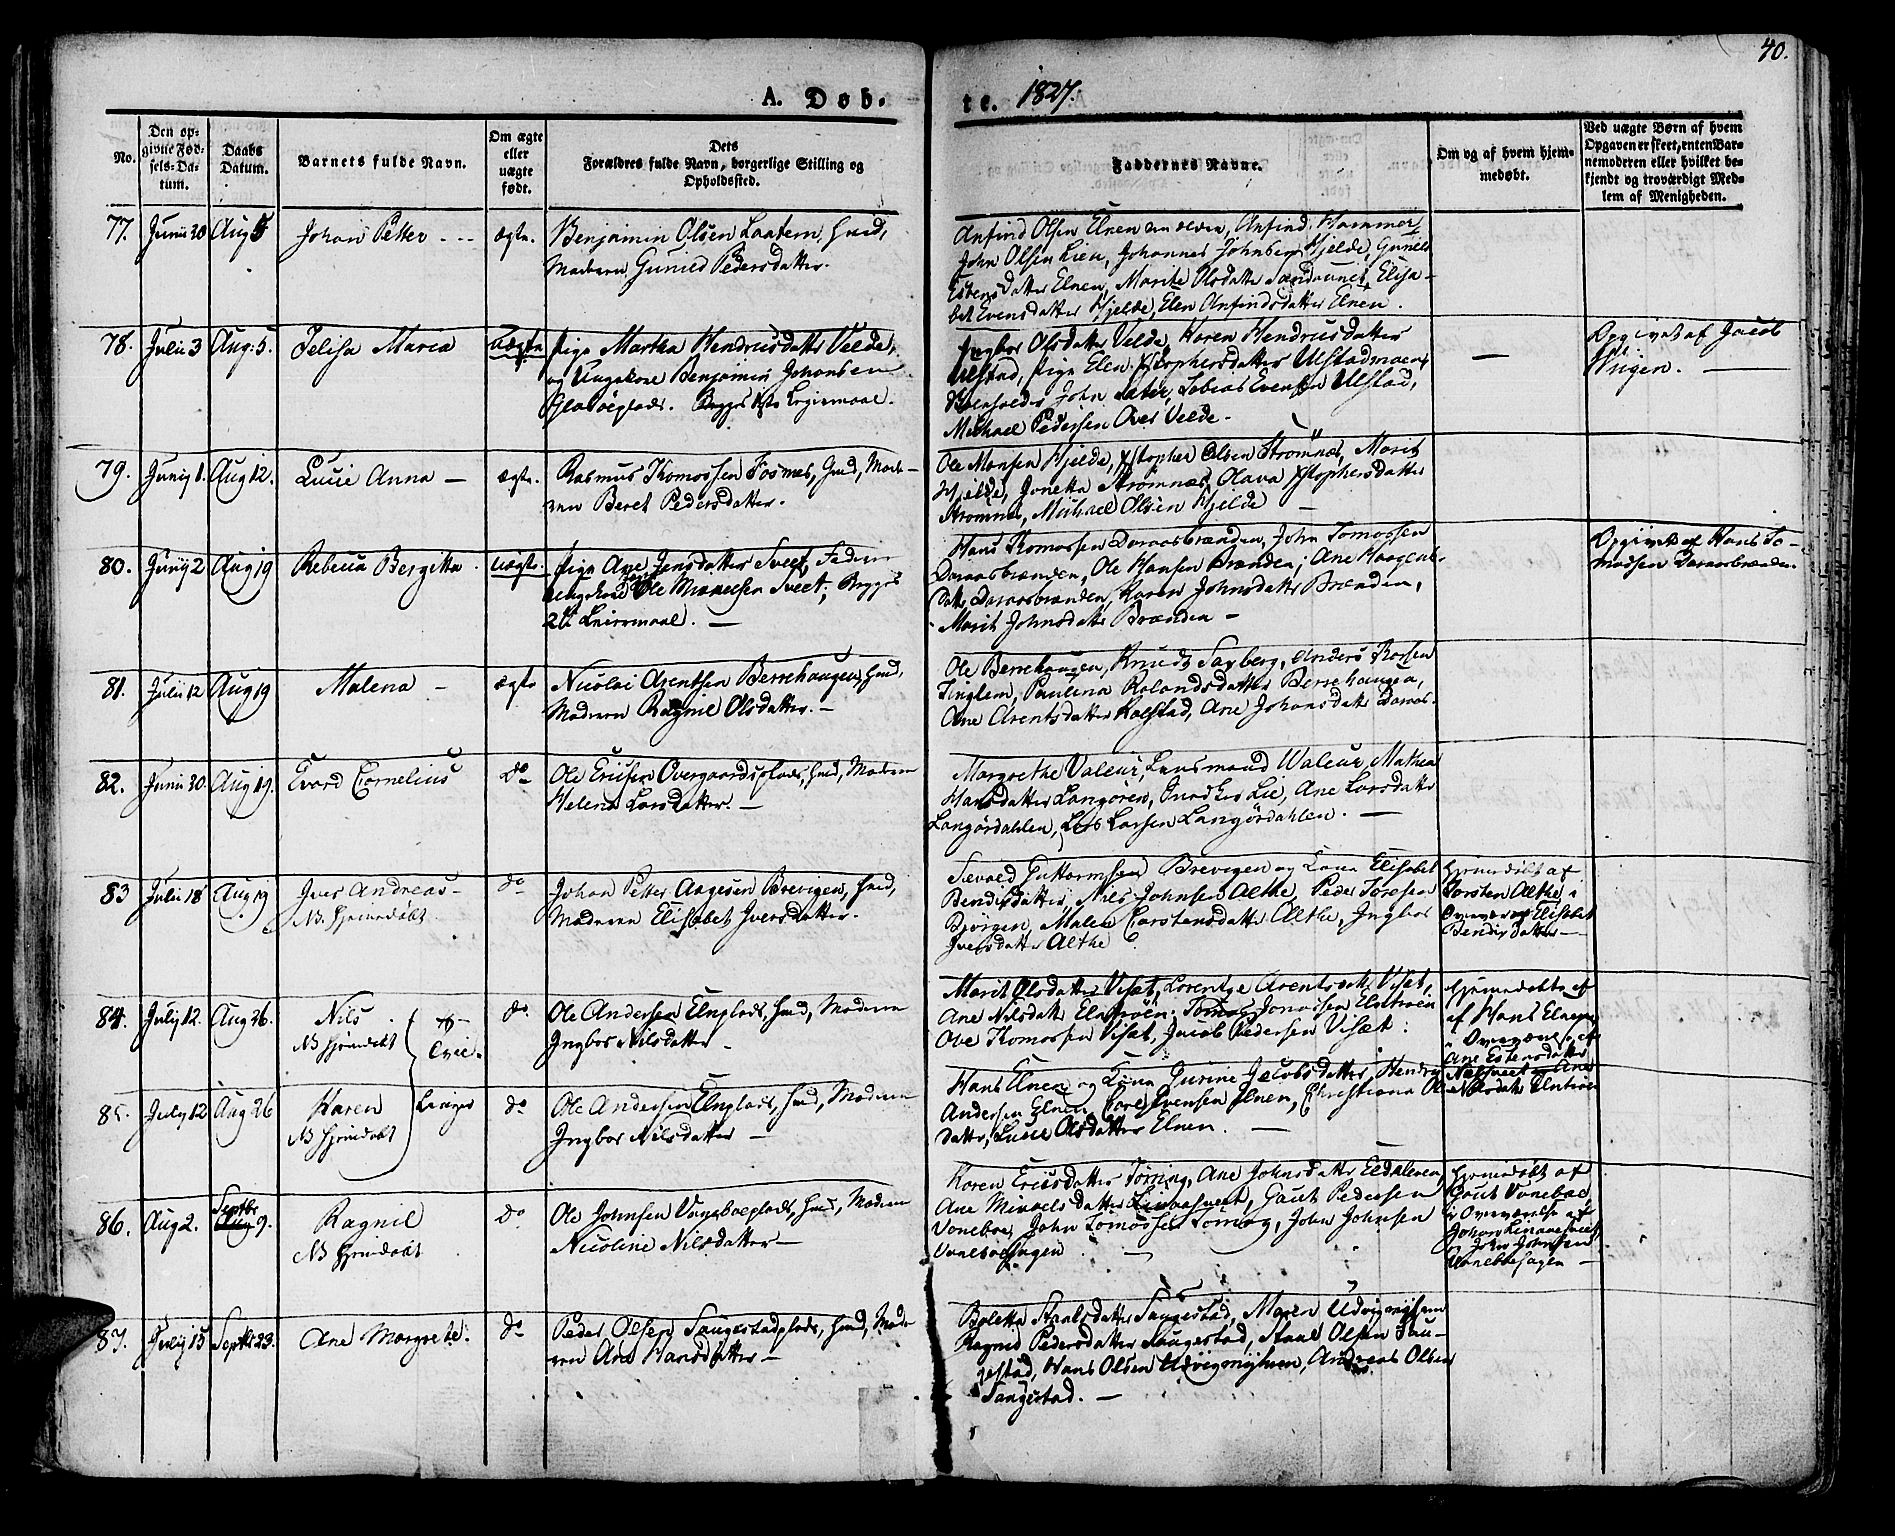 40.
A. Døb- te. 1827.
No.
Den op-
givne Fød-
sels-Da-
tum.
Daabs
Datum.
Barnets fulde Navn.
Om ægte
eller
uægte
født.
Dets
Forældres fulde Navn, borgerlige Stilling og
Opholdssted.
Faddernes Navne.
Om og af hvem hjem-
medøbt.
Ved uægte Børn af hvem
Opgaven er skeet, enten Bar-
nemoderen eller hvilket be-
kjendt og troværdigt Med-
lem af Menigheden.
77. Junii 20 Aug 5 Johan Petter - - - ægte.
Benjamin Olsen Laatern, Hmd,
Moderen Gunild Pedersdatter.
Anfind Olsen Elnen Anfind Hammer,
John Olsen Lien, Johannes Johnsen Hjelde, Gunild
Estensdatter Elnen, Marite Olsdatter Elisa-
bet Evensdatter Hjelde, Elen Anfindsdatter Elnen.
78. Julii 3 Aug. 5. Jelisa Maria uægte
Pige Martha Hendricsdatter Velde,
og Ungekarl Benjamin Johansen
Leiermaal.
Ingbor Olsdatter Velde, Karen Hendricsdatter
Ulstad, Pige Elen Xstophersdatter Ulstadmoen,
John Sæter, Tobias Evensen Ulstad,
Michael Pedersen Over Velde.
—
Opgivet af Jacob
79. Junij 1. Aug 12. Lucie Anna — ægte.
Rasmus Thomassen Fosnæs, Hmd, Mode-
ren Beret Pedersdatter.
Ole Monsen Hjelde, Xstopher Olsen Strømnæs, Marit
Hjelde, Jonetta Strømnæs, Olava Xstophersdatter
Strømnæs, Michael Olsen Hjelde
80. Junij 2 Aug 19 Rebecca Bergitta. uægte.
Pige Ane Jensdatter Sveet, Faderen
Ungekarl Ole Michaelsen Sveet, Begges
2de Leiermaal. —
Hans Thomassen Daraasbrænden, John Tomassen
Daraasbrænden, Ole Hansen Brænden, Ane Haagens-
datter Daraasbrænden, Karen Johnsdatter Brænden,
Marit Johnsdatter Brænden —
Opgivet af Hans To-
massen Daraasbrænden
81. Julii 12 Aug 19 Malena — ægte
Nicolai Arentsen Berrehaugen, Hmd,
Moderen Ragnil Olsdatter. —
Ole Berrehaugen, Knud Saxberg, Anders
Tinglem, Paulina Rolandsdatter Berrehaugen,
Ane Arentsdatter Kolstad, Ane Johansdatter Daraas.
82. Junii 30. Aug 19. Evard Cornelius do
Ole Ericsen Overgaardsplads, Hmd, Moderen
Helena Larsdatter. —
Margrethe Valeur, Lensmand Waleur, Mathea
Hansdatter Langøren, Lie, Ane Larsdatter
Langørdahlen, Lars Larsen Langørdahlen. —
83 Julii 18 Aug 19 Iver Andreas- do
NB hjemdøbt.
Johan Petter Aagesen Brevigen, Hmd,
Moderen Elisabet Iversdatter.
Sevald Guttormsen Brevigen og Kone Elisabet
Bendixdatter, Nils Johnsen Althe, Peder Toresen
Bjørgen, Malen Carstensdatter Althe, Ingbor
Iversdatter Althe
Hjemmedøbt af
Torsten Althe, i
Overvær af Elisabet
Bendixdatter —
84. Julij 12. Aug 26. Nils do
NB hjemdøbt
Ole Andersen Elnplads, Hmd, Moderen
Ingbor Nilsdatter —
Marit Olsdatter Visæt, Lorentze Arentsdatter Visæt,
Ane Nilsdatter Tomas Jonassen
Ole Thomassen Visæt, Jacob Pedersen Visæt.
Hjemmedøbte af
af Hans Elnen
i Overværelse af
Ane Estensdatter
85. Julij 12 Aug 26 Karen do
NB hjemdøbt
Ole Andersen Elnplads, Hmd, Moderen
Ingbor Nilsdatter —
Hans Elnen og Kone Gurine Jacobsdatter, Hendric
Andersen Elnen, Carl Evensen Elnen, Christiana Ols-
datter, Lucie Olsdatter Elnen. —
86. Aug 2. Septbr 9. Ragnil do
NB hjemdøbt
Ole Johnsen Hmd, Moderen
Nicoline Nilsdatter —
Karen Ericsdatter Tøring, Ane Johnsdatter Eldaleren,
Ane Michaelsdatter Linaasveet, Gaut Pedersen
Vonebæ, John Tomassen John Johnsen
Hjemmedøbt af
Gaut Vonebæ,
i Overværelse af
Johan Linaasveet
og John Johnsen
87. Julij 15 Septbr 23. Ane Margrete. do
Peder Olsen Saugestadplads, Hmd, Mode-
ren Ane Hansdatter —
Boletta Staalsdatter Saugestad, Maren Udvigmyhren
Ragnild Pedersdatter Saugestad, Staal Olsen Sau-
gestad, Hans Olsen Udvigmyhren, Andreas Olsen
Saugestad. —